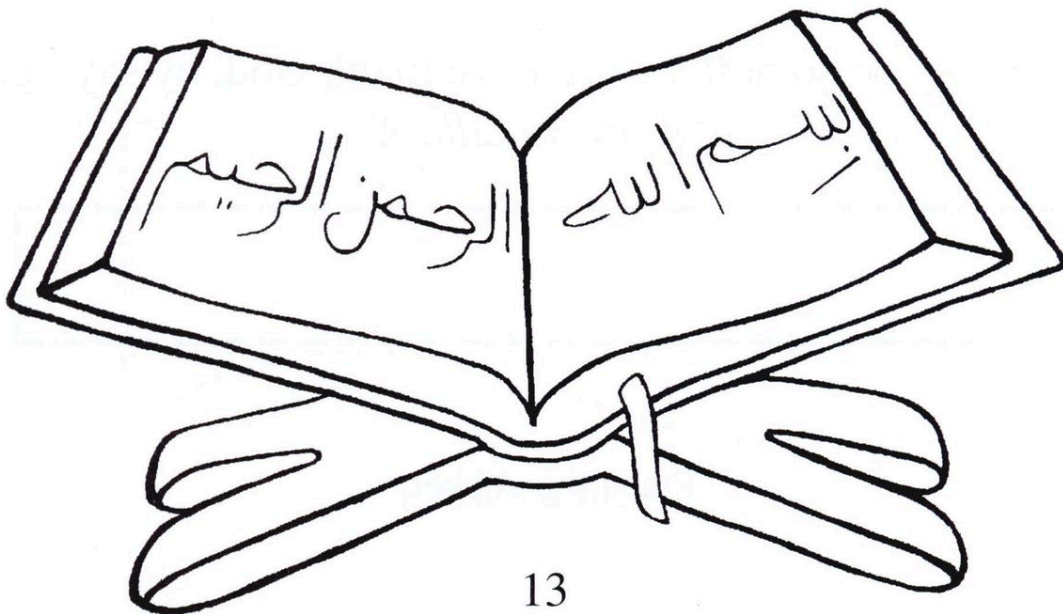 بسم الله
الرحمن الرحيم
13